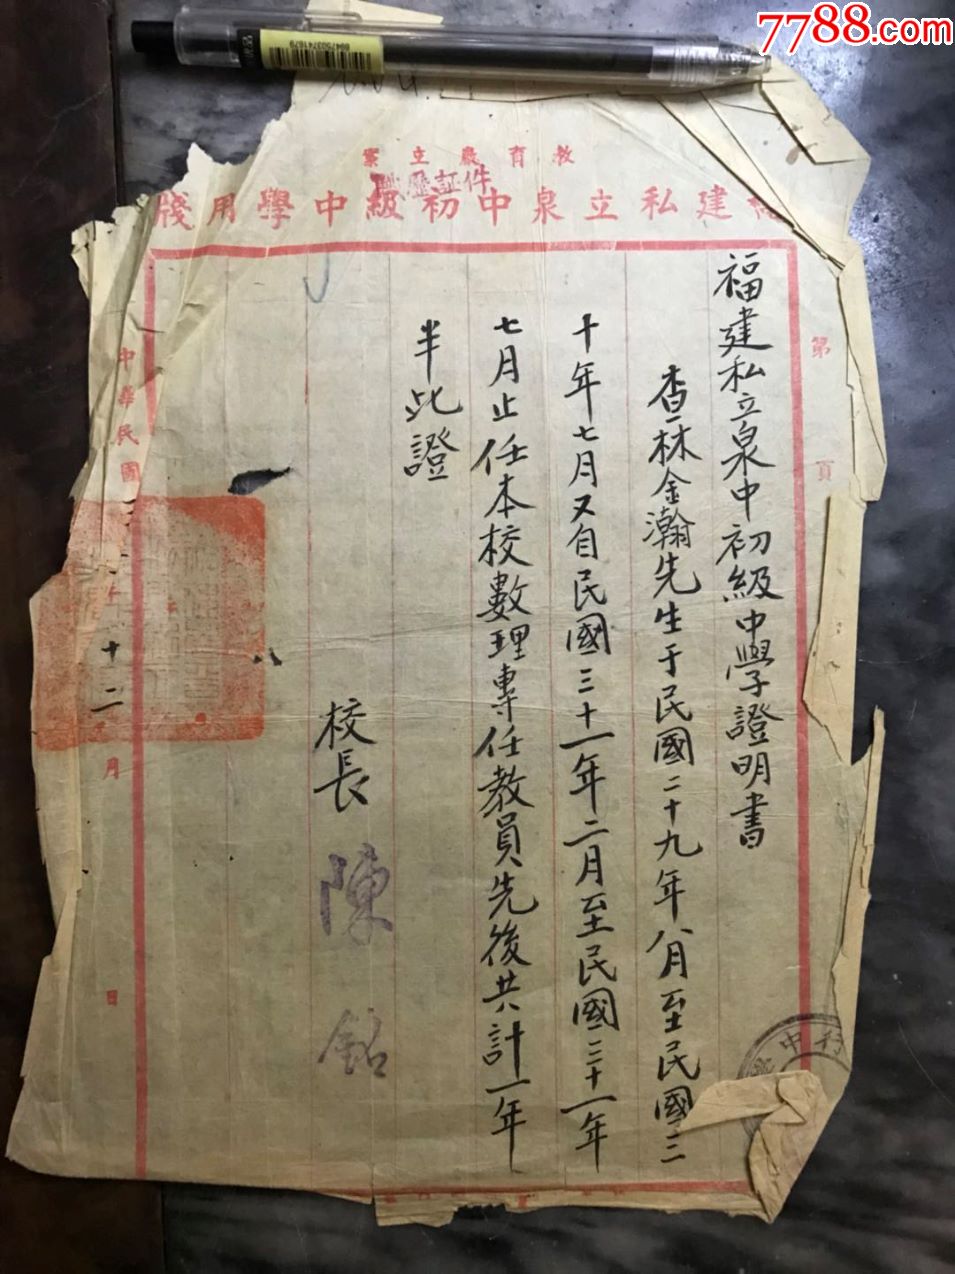 7788.com
8947503741679
教育廳立案
證件
建私立泉中初級中學用牋
第　頁
福建私立泉中初級中學證明書
查林金瀚先生于民國二十九年八月至民國三
十年七月又自民國三十一年二月至民國三十一年
七月止任本校數理專任教員先後共計一年
半此證
校長　陳銘
中華民國
十二月　日
中